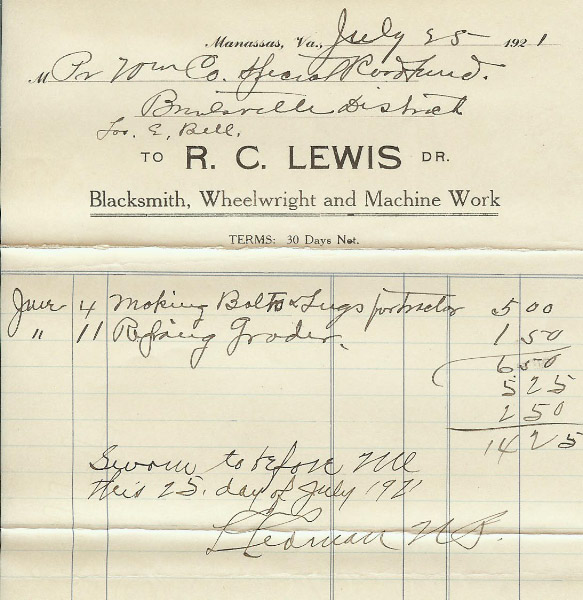 Manassas, Va., July 25 1921
M Pr Wm Co. Special Road Fund.
Brentsville District
Jos. E. Bell,
TO R. C. LEWIS DR.
Blacksmith, Wheelwright and Machine Work
TERMS: 30 Days Net.
June 4 Making Bolts & Lugs for tractor 5 00
" 11 Grader. 1 50
6 50
5 25
2 50
14 25
Sworn to before me
this 25. day of July 1921